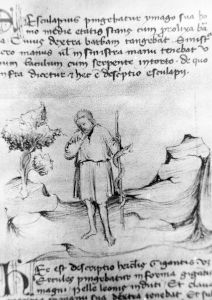 Esculapius pingebatur ymago sua ho
mo medie etatis stans cum prolixa bar
ba Cuius dextra barbam tangebat Sinist
vero manus ul in sinistra manu tenebat u
num baculum cum serpente intorto. de quo
infra dicetur hec e descriptio esculapii
Hec est descriptio herculis Gigantis
Ercules pingebatur in forma giga
magni Pelle leonis induti Et clava
manu sua dextra tenebat Et